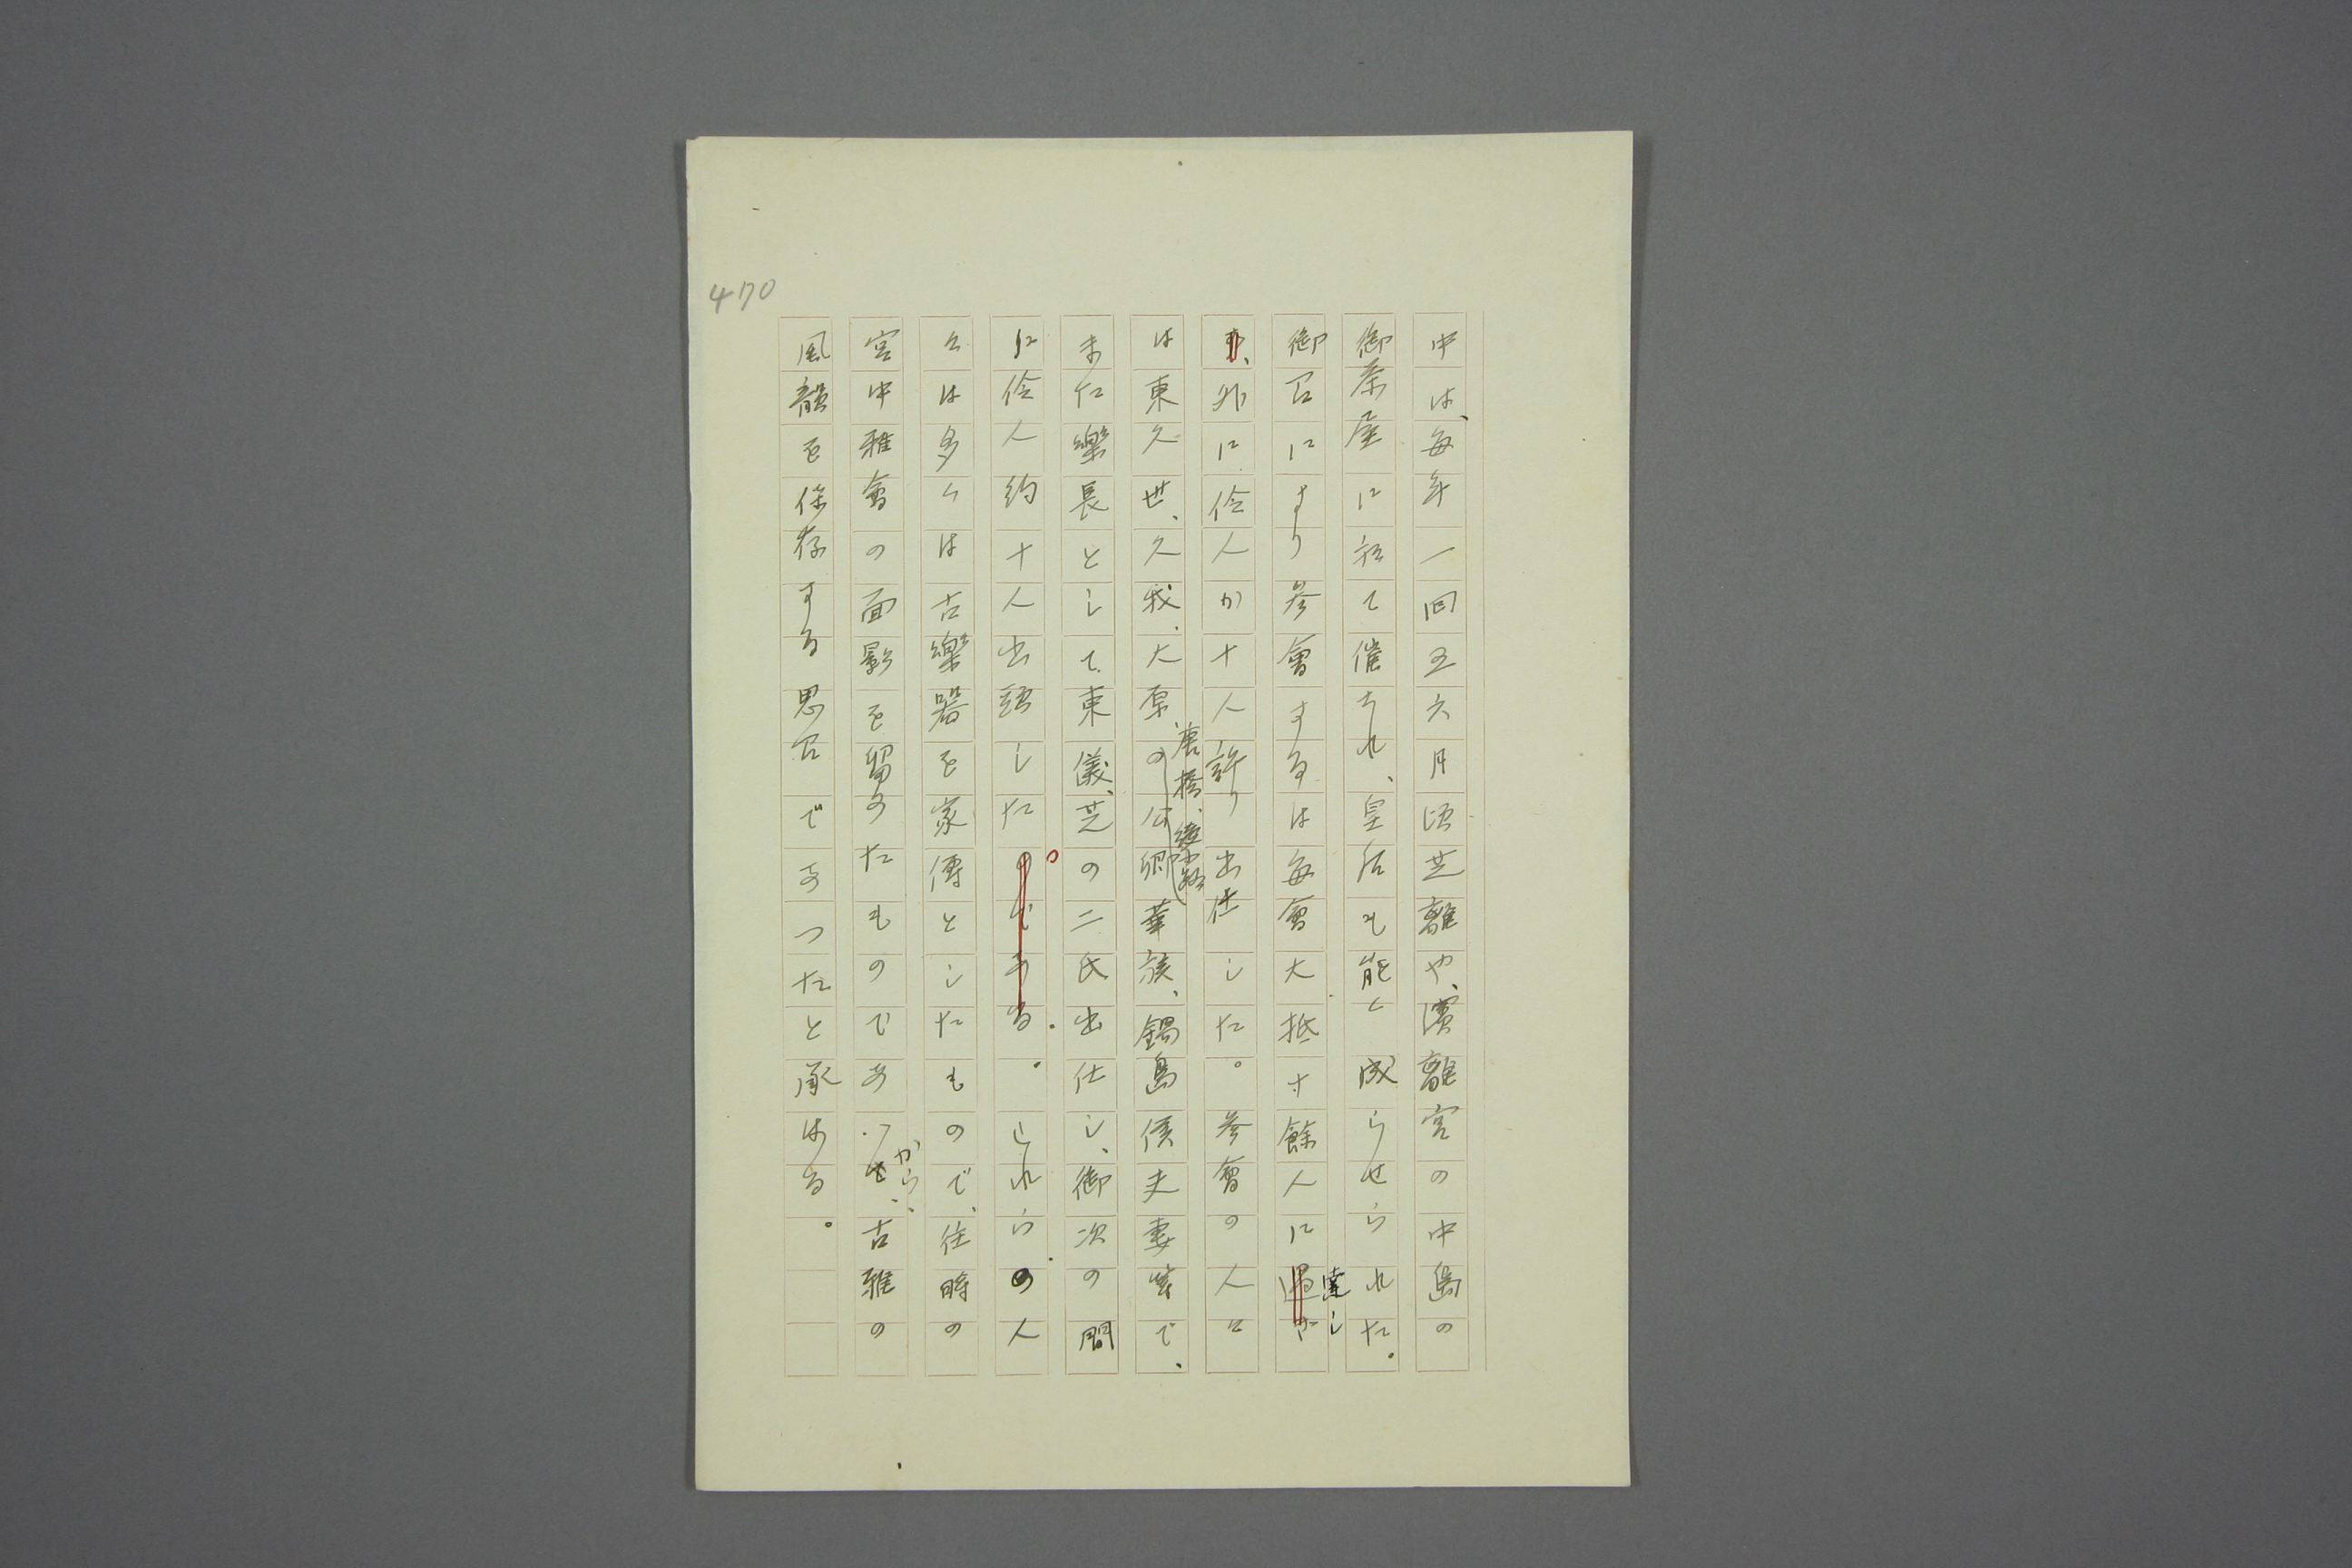 470
中は、每年一回五六月頃芝離や、濱離宮の中島の
御茶屋に於て催され、皇后も能く成らせられた。
御召により參會するは每會大抵十餘人に過ぎ
達し
ず、外に伶人が十人許り出仕した。參會の人々
唐橋、綾小路
は東久世、久我、大原の公卿華族、鍋島侯夫妻等で、
また樂長として、東儀、芝の二氏出仕し、御次の間
に伶人約十人出頭したのである。。これらの人
々は多くは古樂器を家傳としたもので、往時の
宮中雅會の面影を留めたものであつたから、古雅の
風韻を保存する思召であつたと承はる。